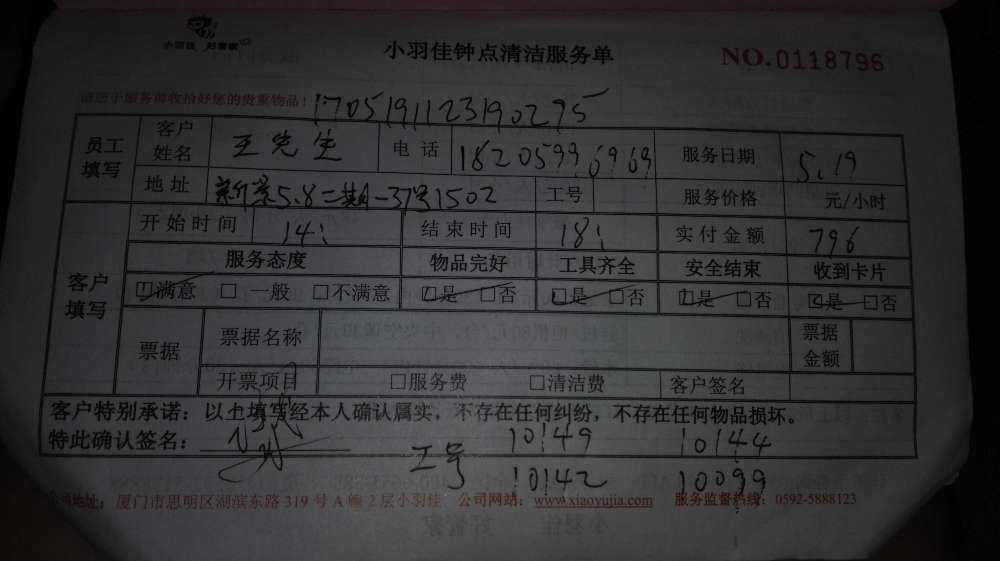 小羽佳 好管家
小羽佳钟点清洁服务单
NO.0118796
请您于服务前收拾好您的贵重物品！
1705191123190295
员工填写 客户姓名 王先生 电话 18205996969 服务日期 5.19
地址 新景5.8二期-37号1502 工号 服务价格 元/小时
客户填写 开始时间 14: 结束时间 18: 实付金额 796
服务态度 物品完好 工具齐全 安全结束 收到卡片
☑满意 □一般 □不满意 ☑是 □否 ☑是 □否 ☑是 □否 ☑是 □否
票据 票据名称 票据金额
开票项目 □服务费 □清洁费 客户签名
客户特别承诺：以上填写经本人确认属实，不存在任何纠纷，不存在任何物品损坏。
特此确认签名：
工号 10149 10144
10142 10099
公司地址：厦门市思明区湖滨东路319号A幢2层小羽佳 公司网站：www.xiaoyujia.com 服务监督热线：0592-5888123